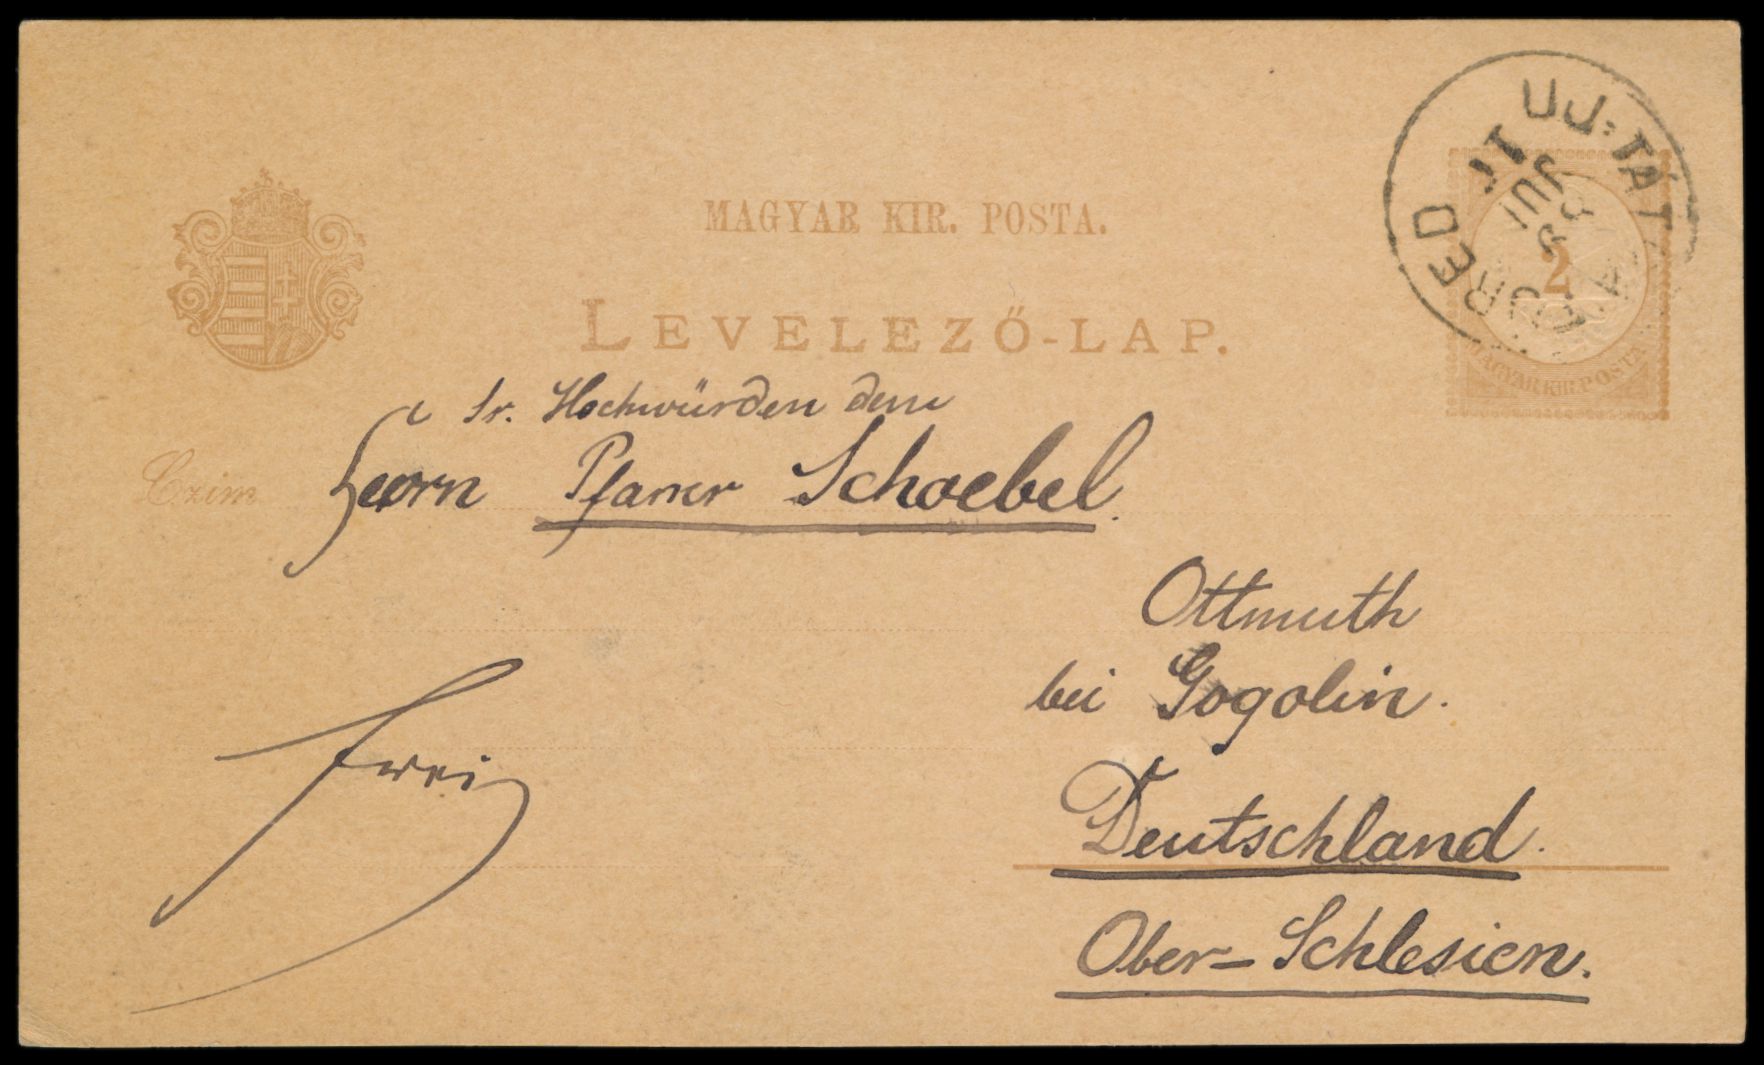 MAGYAR KIR. POSTA.
LEVELEZŐ-LAP.
UJ-TÁT
RED
JUL
2
MAGYAR KIR. POSTA
Czim
Sr. Hochwürden dem
Herrn Pfarrer Schoebel.
Ottmuth
bei Gogolin.
Deutschland.
Ober-Schlesien.
frei